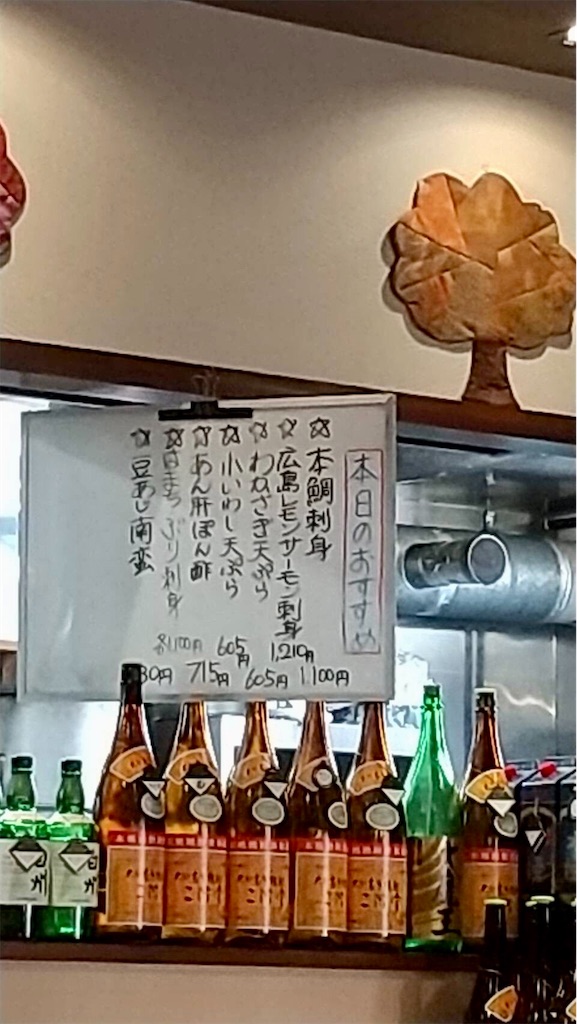 本日のおすすめ
☆本鯛刺身 1,100円
☆広島レモンサーモン刺身 1,210円
☆わかさぎ天ぷら 605円
☆小いわし天ぷら 605円
☆あん肝ぽん酢 715円
☆はまち ぶり刺身 各1,100円
☆豆あじ南蛮 30円
白州
白州